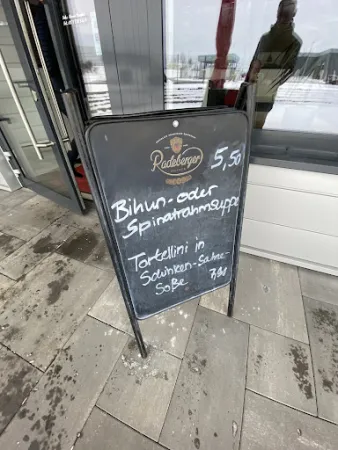 Radeberger
PILSNER
5,50
Bihun- oder
Spinatrahmsuppe
Tortellini in
Schinken-Sahne-
Soße